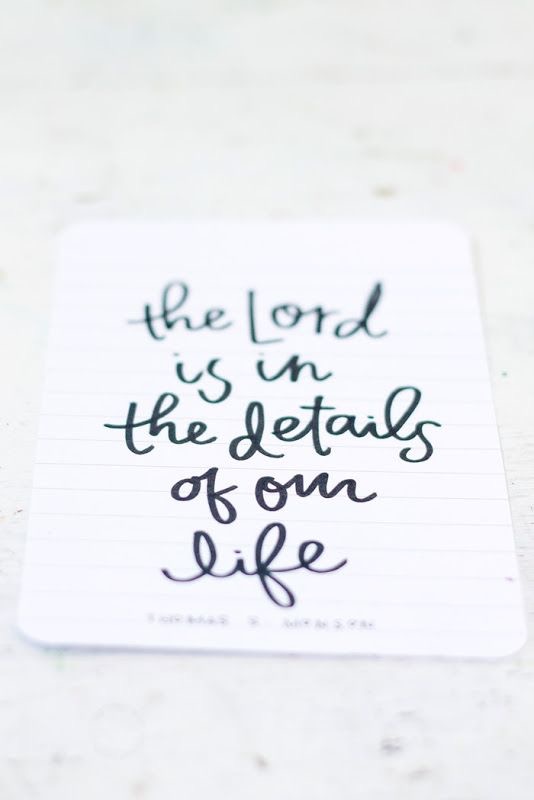 the Lord
is in
the details
of our
life
THOMAS S. MONSON